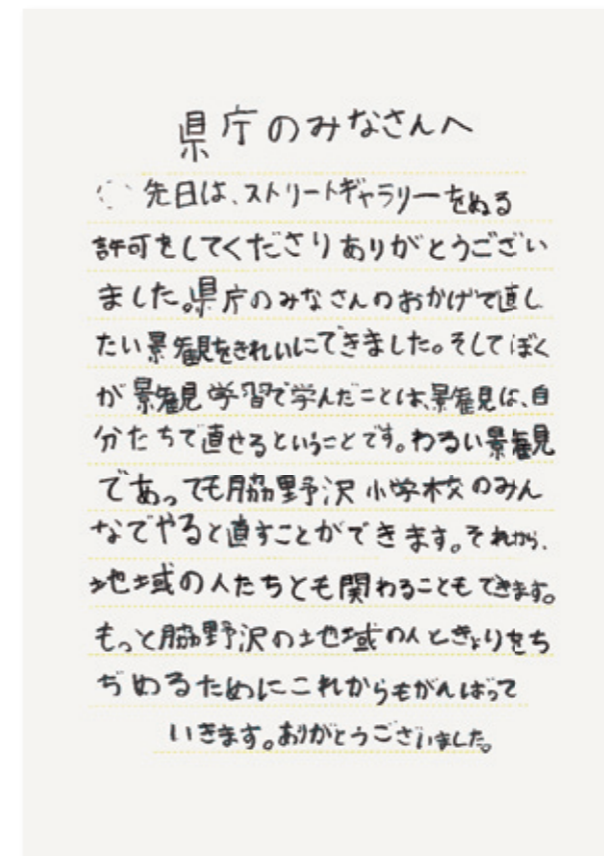 県庁のみなさんへ
先日は、ストリートギャラリーをぬる
許可をしてくださりありがとうござい
ました。県庁のみなさんのおかげで直し
たい景観をきれいにできました。そしてぼく
が景観学習で学んだことは、景観は、自
分たちで直せるということです。わるい景観
であっても脇野沢小学校のみん
なでやると直すことができます。それから、
地域の人たちとも関わることもできます。
もっと脇野沢の地域の人ときょりをち
ぢめるためにこれからもがんばって
いきます。ありがとうございました。